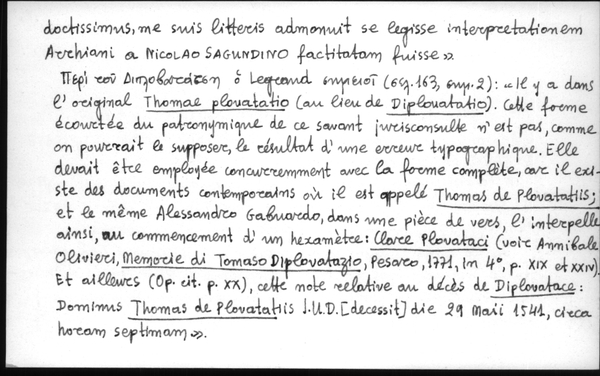 doctissimus, me suis litteris admonuit se legisse interpretationem
Arrhiani a NICOLAO SAGUNDINO factitatam fuisse».
Περί τοῦ Διπλοβατάτζη ὁ Legrand σημειοῖ (σελ. 163, σημ. 2): «Il y a dans
l'original Thomae plovatatio (au lieu de Diplovatatio). Cette forme
écourtée du patronymique de ce savant jurisconsulte n'est pas, comme
on pourrait le supposer, le résultat d'une erreur typographique. Elle
devait être employée concurremment avec la forme complète, car il exi-
ste des documents contemporains où il est appelé Thomas de Plovatatiis;
et le même Alessandro Gabuardo, dans une pièce de vers, l'interpelle
ainsi, au commencement d'un hexamètre: Clare Plovataci (voir Annibale
Olivieri, Memorie di Tomaso Diplovatazio, Pesaro, 1771, in 4°, p. XIX et XXIV).
Et ailleurs (Op. cit. p. XX), cette note relative au décès de Diplovatace:
Dominus Thomas de Plovatatiis J.U.D. [decessit] die 29 Maii 1541, circa
horam septimam».